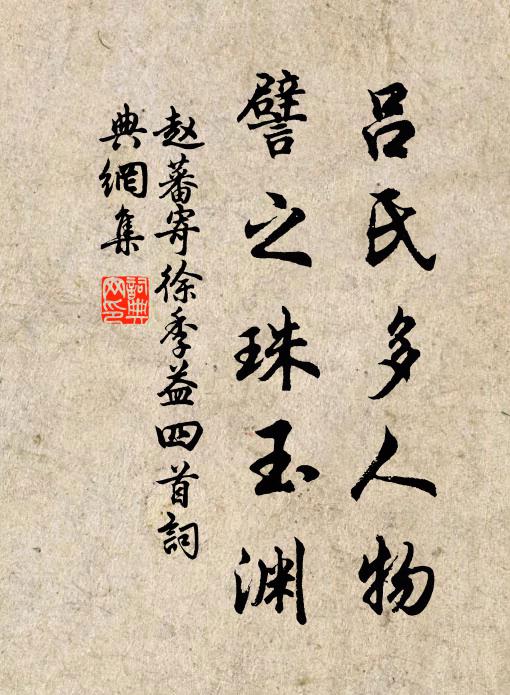 吕氏多人物
譬之珠玉渊
赵蕃寄徐季益四首詞
典網集
詞典网印